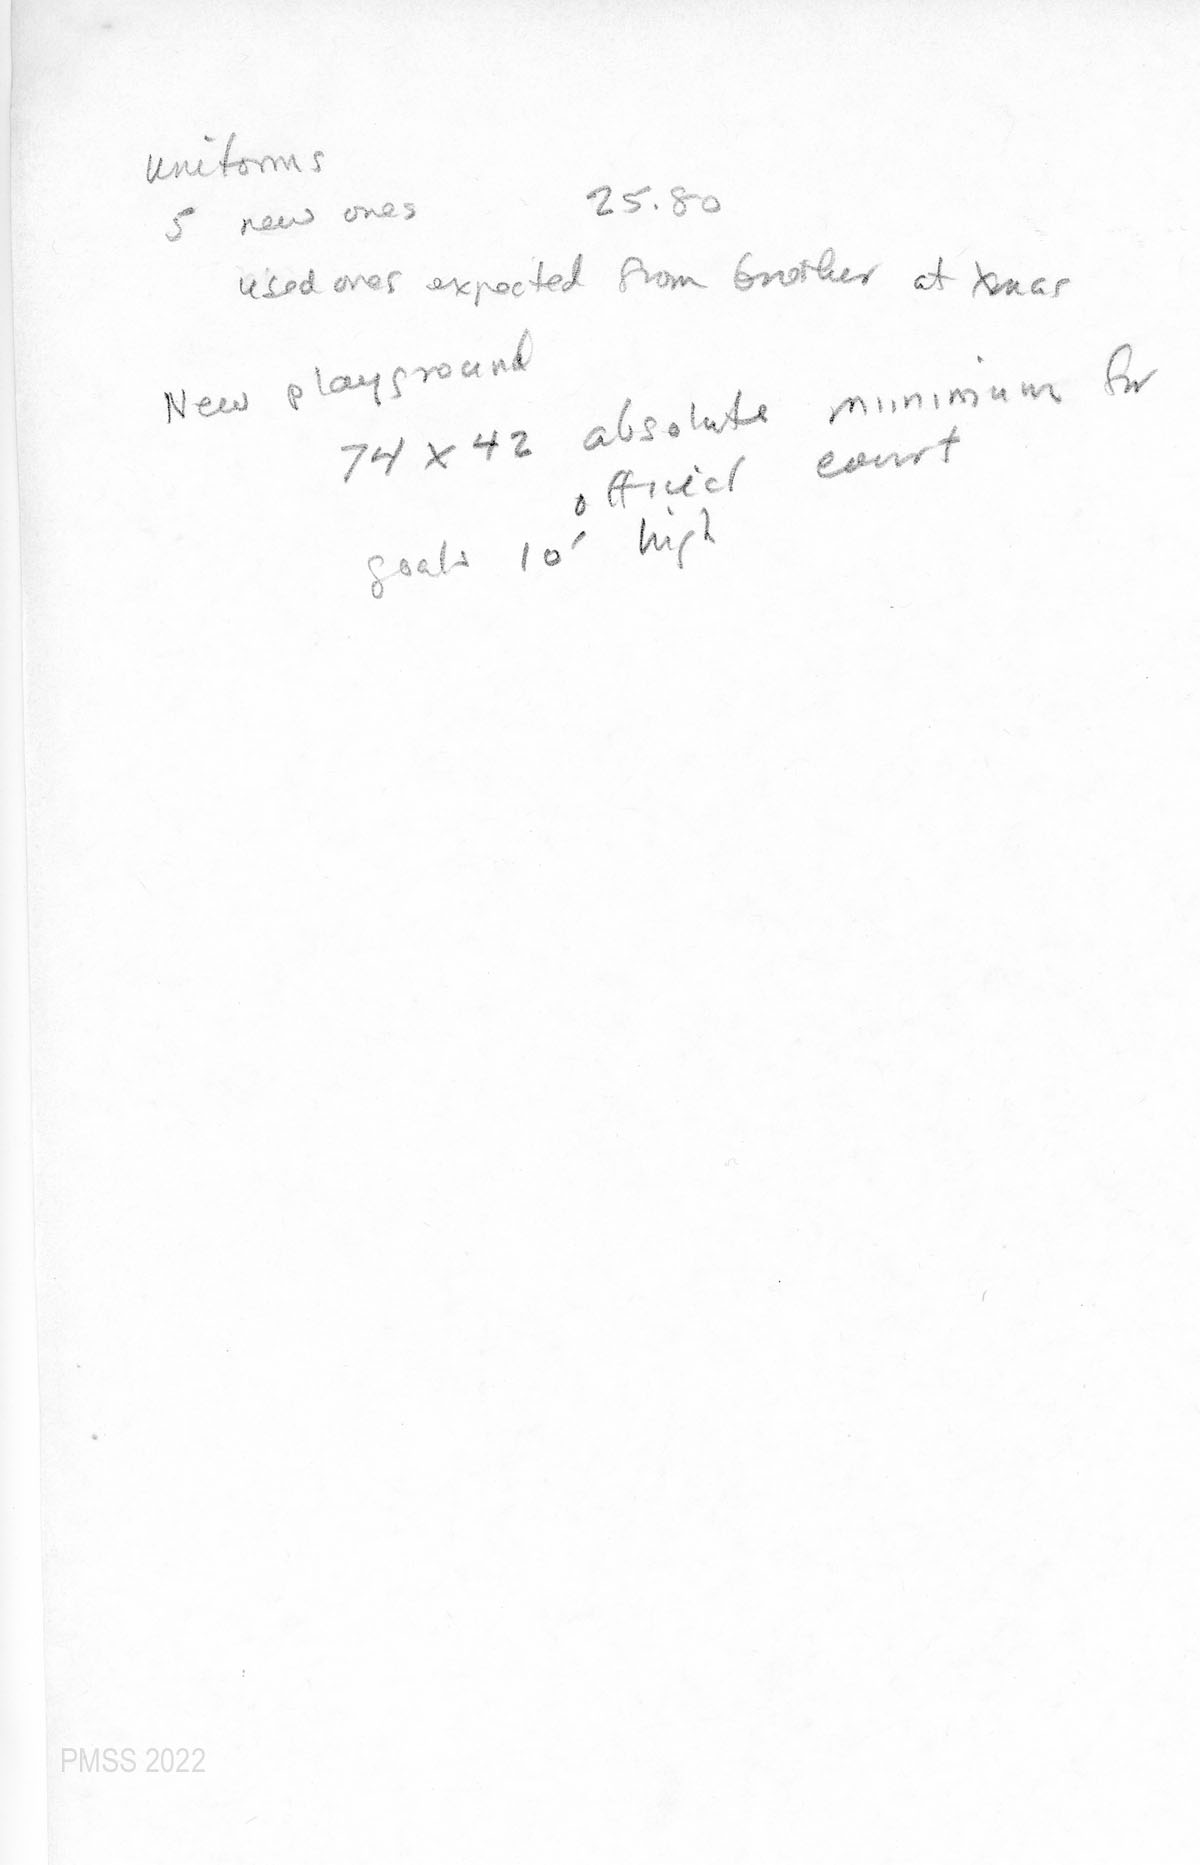 uniforms
5 new ones 25.80
used ones expected from brother at Xmas
New playground
74 x 42 absolute minimum for
official court
goals 10' high
PMSS 2022